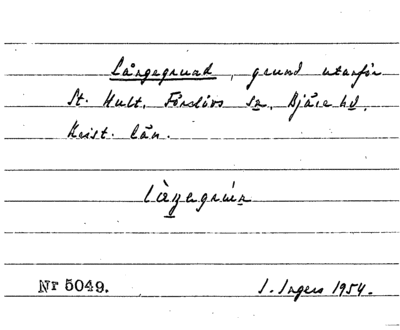 Långegrund, grund utanför
St. Hult, Förslövs sn, Bjäre hd,
Krist. län.
Nr 5049.
I. Ingers 1954.